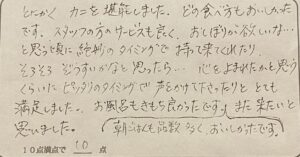 とにかく カニを堪能しました。どの食べ方もおいしかった
です。スタッフの方のサービスも良く、おしぼりが欲しいな…
と思う頃に絶妙のタイミングで持って来てくれたり、
そろそろ ぞうすいかなと思ったら… 心をよまれたかと思う
くらいに ピッタリのタイミングで 声をかけて下さったりと とても
満足しました。お風呂もきもち良かったです。また来たいと
思いました。
朝ごはんも品数多く、おいしかったです。
10点満点で 10 点